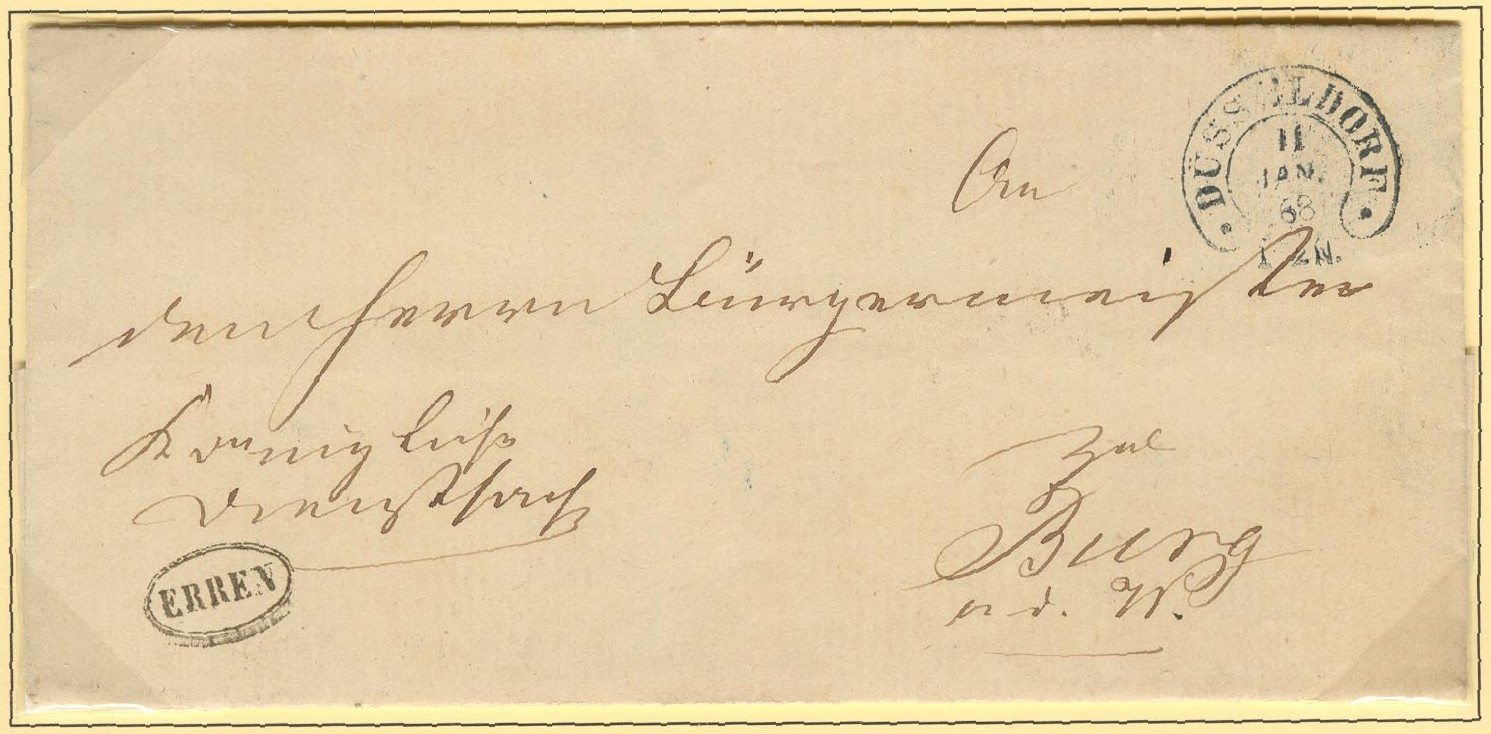 DÜSSELDORF
11
JAN.
68
1-2N.
An
den Herrn Bürgermeister
Königliche
Dienstsache
zu
Burg
a. d. W.
ERREN